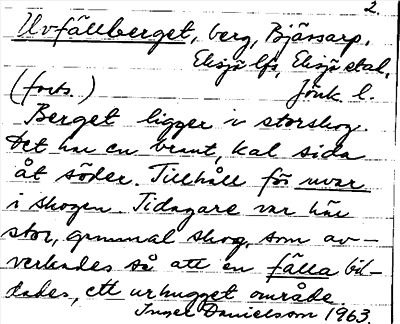 2.
Uvfällberget, berg, Bjärsarp.
Eksjö lfs, Eksjö stad.
(forts.) Jönk. l.
Berget ligger i storskog.
Det har en brant, kal sida
åt söder. Tillhåll för uvar
i skogen. Tidagare var här
stor, gammal skog, som av-
verkades så att en fälla bil-
dades, ett urhugget område.
Inger Danielsson 1963.